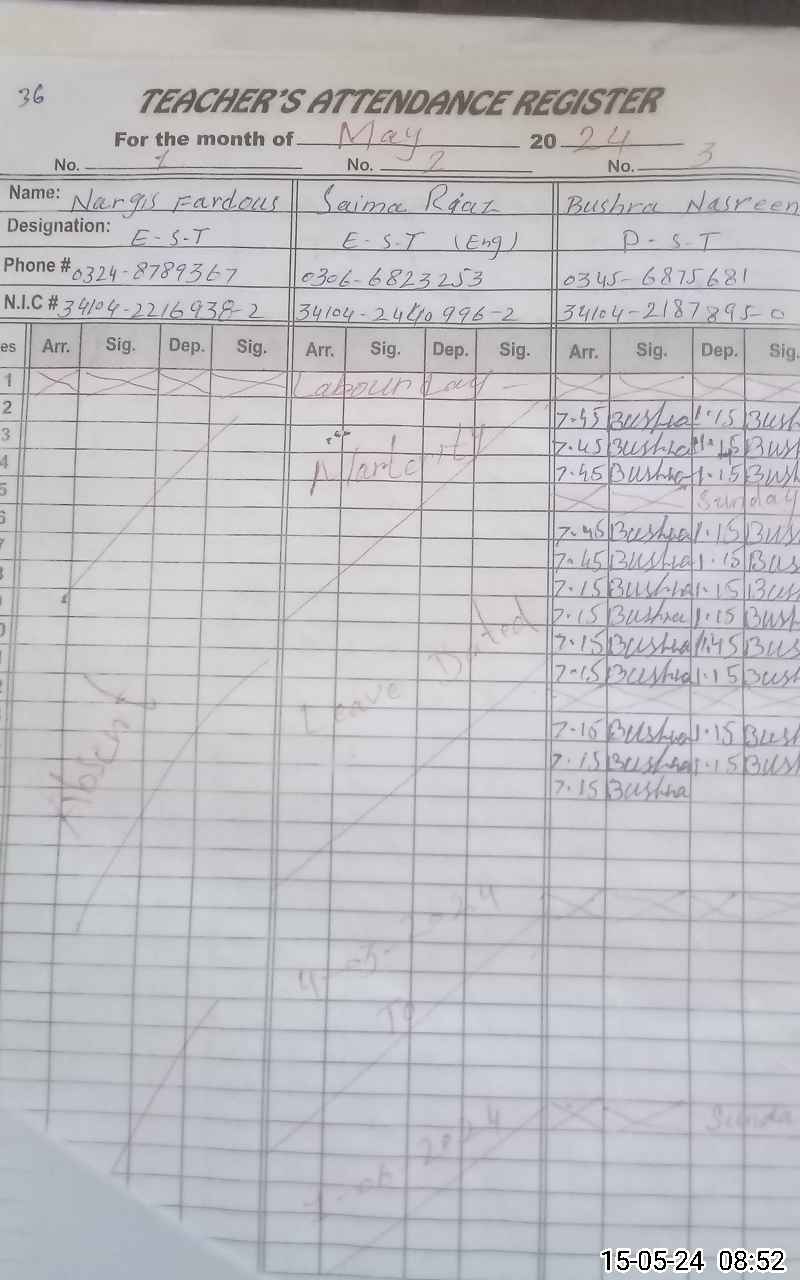 36
TEACHER'S ATTENDANCE REGISTER
For the month of May 2024
No. 1 No. 2 No. 3
Name: Nargis Fardous Saima Riaz Bushra Nasreen
Designation: E-S-T E-S-T (Eng) P-S-T
Phone # 0324-8789367 0306-6823253 0345-6875681
N.I.C # 34104-2216938-2 34104-2440996-2 34104-2187895-0
es Arr. Sig. Dep. Sig. Arr. Sig. Dep. Sig. Arr. Sig. Dep. Sig.
1 Labour Day
2 7-45 Bushra 1-15 Bush
3 7-45 Bushra 1-15 Bush
4 7-45 Bushra 1-15 Bush
5 Sunday
6 7-45 Bushra 1-15 Bus
7-45 Bushra 1-15 Bus
7-15 Bushra 1-15 Bus
7-15 Bushra 1-15 Bush
7-15 Bushra Bus
7-15 Bushra 1-15 Bush
Leave Dated
7-15 Bushra 1-15 Bush
7-15 Bushra 1-15 Bush
7-15 Bushra
Absent
4-03-2024
To
2024
Sunda
15-05-24 08:52